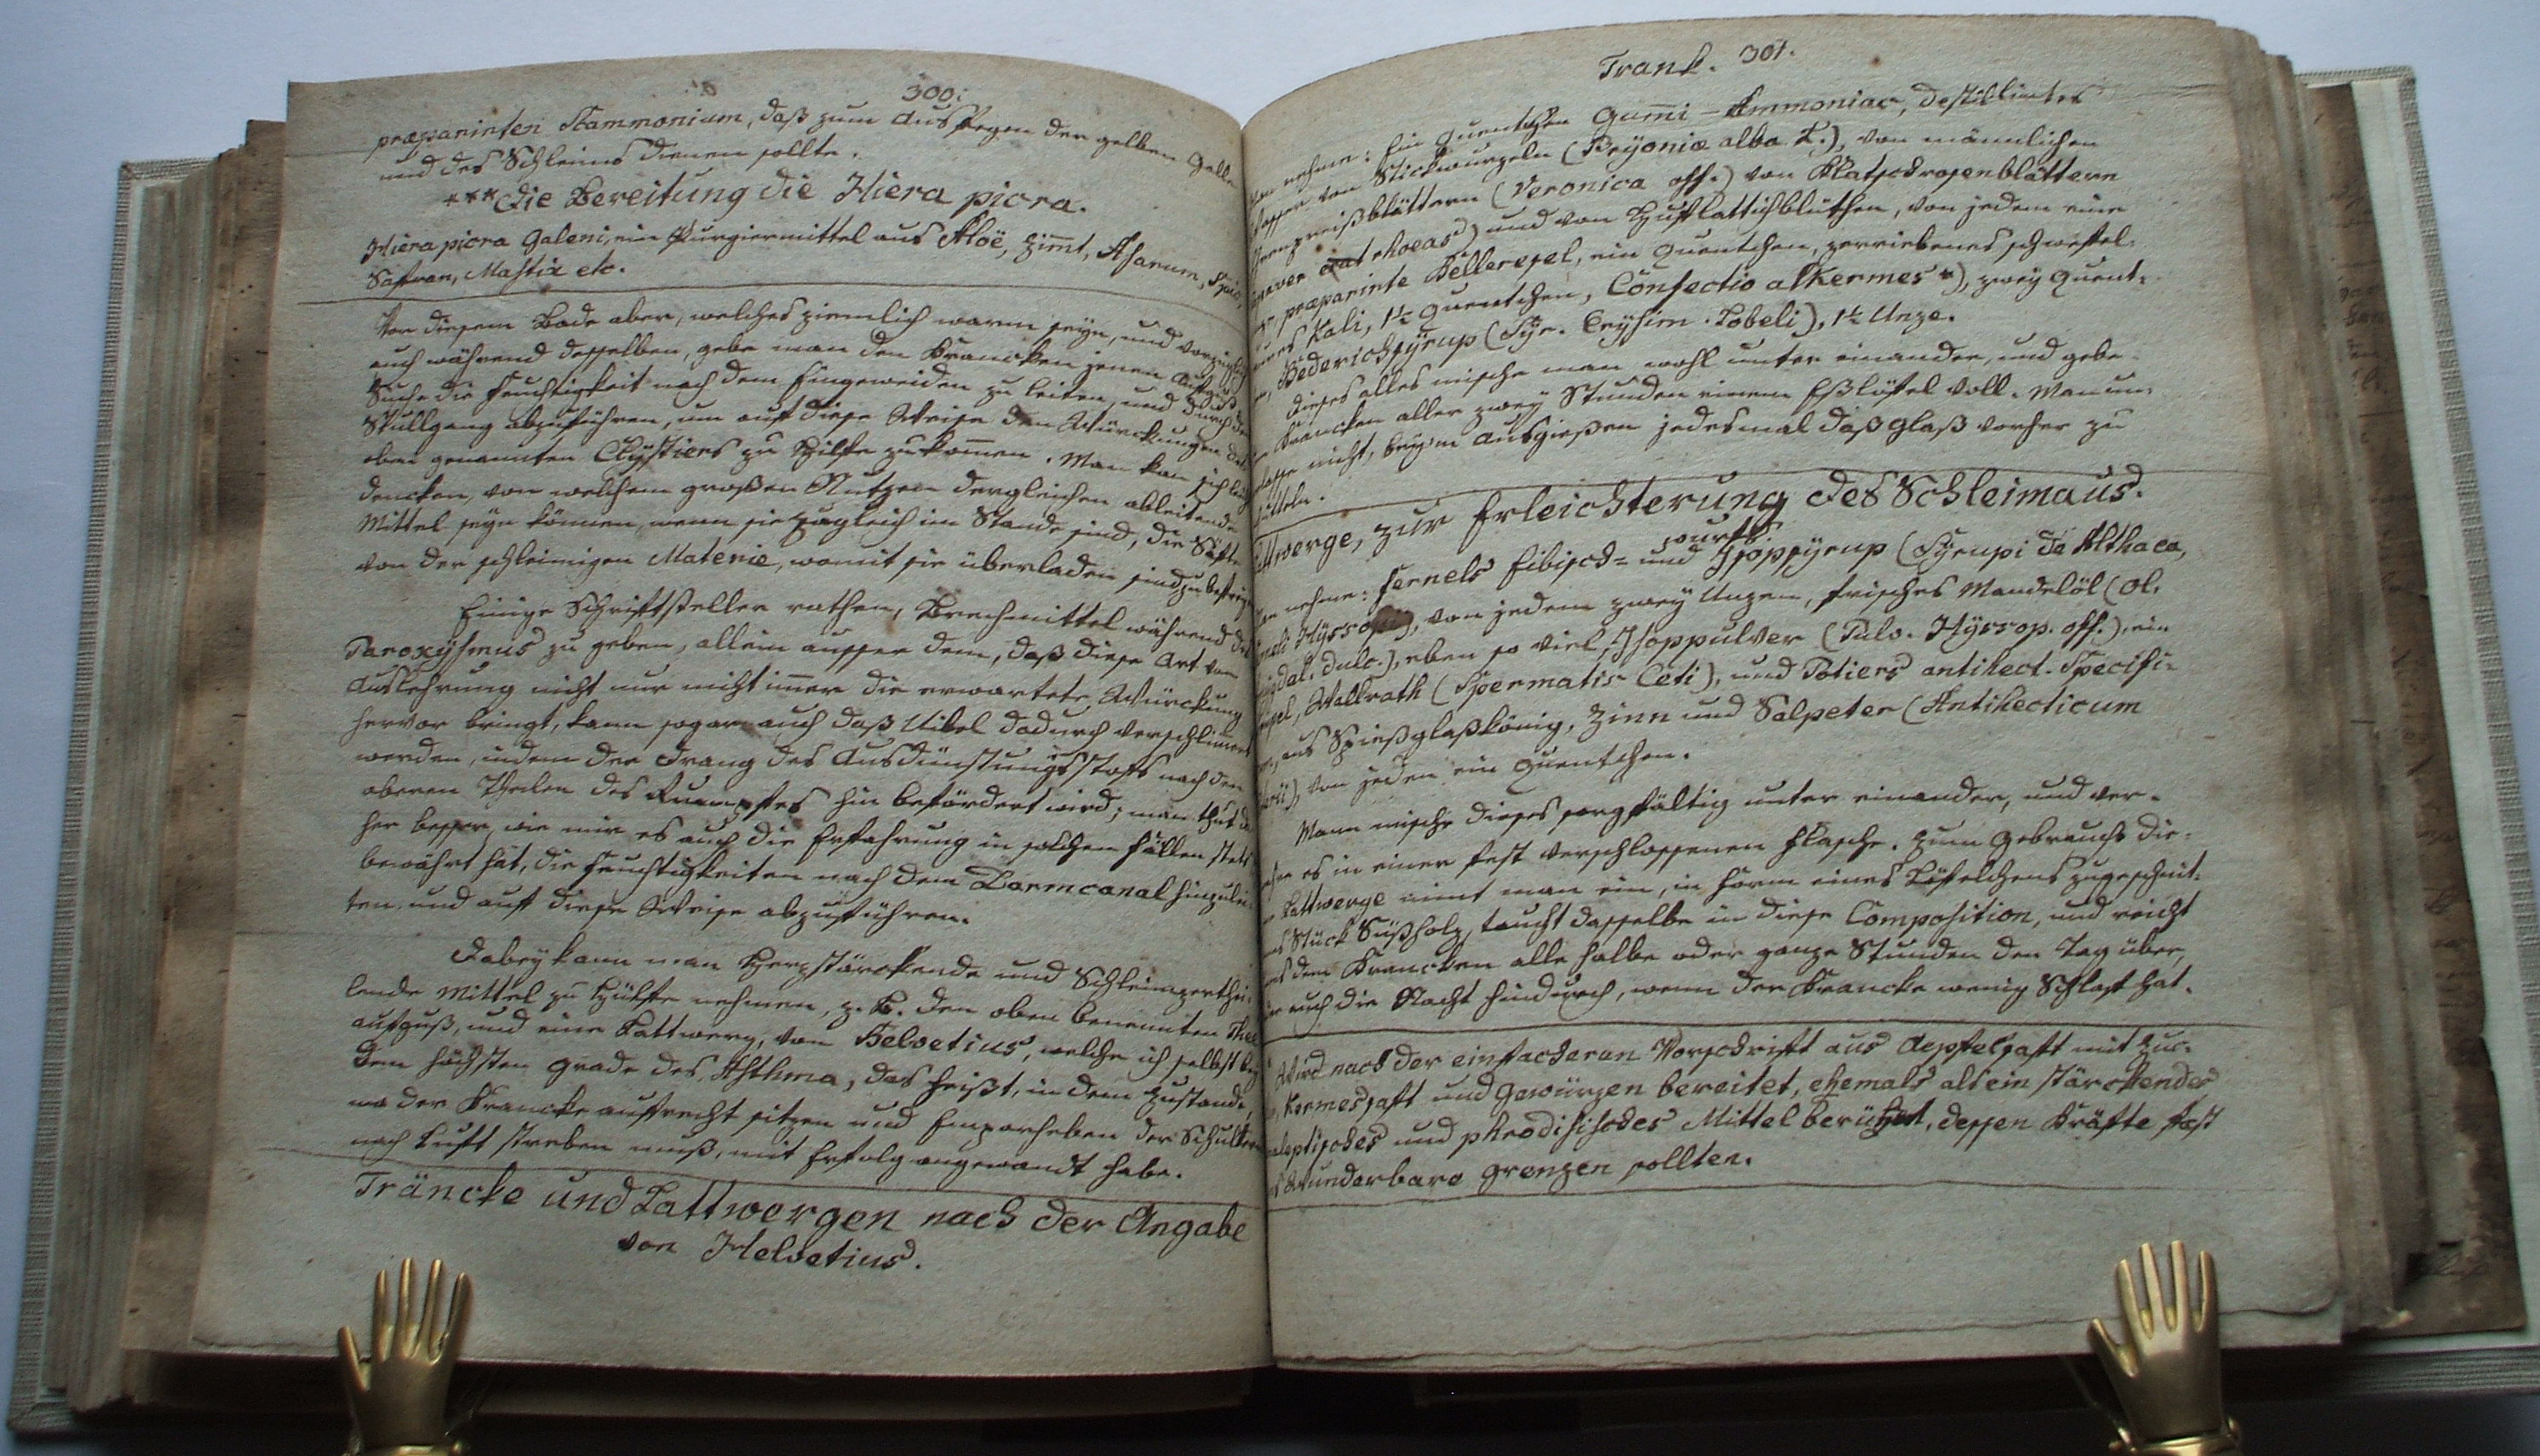 300.
præparirten Scammonium, daß zum Ausfegen der gelben Galle
und des Schleims dienen sollte.
*** Die Bereitung die Hiera picra.
Hiera picra Galeni, ein Purgiermittel aus Aloë, Zim̅t, Asarum, Spic,
Saffran, Mastix etc.
Vor diesem Bade aber, welches ziemlich warm seyn, und vorzüglich
auch während desselben, gebe man den Krancken jenen Aufguß
Suche die Feuchtigkeit nach dem Eingeweiden zu leiten, und durch den
Stullgang abzuführen, um auf diese Weise den Würckungen des
oben genannten Clystiers zu Hilfe zukom̅en. Man kan sich leicht
dencken, von welchem großen Nutzen dergleichen ableitende
Mittel seyn können, wenn sie zugleich im Stande sind, die Säfte
von der schleimigen Materie, womit sie überladen sind, zu befreyen
Einige Schriftsteller rathen, Brechmittel während des
Paroxysmus zu geben, allein ausser dem, daß diese Art von
Ausleehrung nicht nur nicht im̅er die erwartete Würckung
hervor bringt, kann sogar auch daß Uibel dadurch verschlim̅ert
werden, indem der Drang des Ausdünstungsstoffs nach den
oberen Theilen des Rumpfes hin befördert wird; man thut da
her besser, wie mir es auch die Erfahrung in solchen Fällen stets
bewährt hat, die Feuchtigkeiten nach dem Darmcanal hinzulei
ten, und auf diese Weise abzuführen.
Dabey kann man Herzstärckende und Schleimzerthei
lende Mittel zu Hülfe nehmen, z. B. den oben benennten Thee
aufguß, und eine Lattwerg, von Helvetius, welche ich selbst bey
dem höchsten Grade des Asthma, das heißt, in dem Zustande,
wo der Krancke aufrecht sitzen und Emporheben der Schultern
nach Luft streben muß, mit Erfolg angewandt habe.
Träncke und Lattwergen nach der Angabe
von Helvetius.
Trank. 301.
Man nehme: Ein Quentchen Gum̅i-Ammoniac, destillirtes
Wasser von Stickwurzeln (Bryoniæ alba L.), von männlichen
Ehrenpreißblättern (Veronica off.) von Klatschrosenblättern
rhoeas) und von Huflattichblüthen, von jedem eine
præparirte Kelleresel, ein Quentchen, zerriebenes schwefel-
Kali, 1½ Quentchen, Confectio alkermes *), zwey Quent-
Hederichsyrup (Syr. Erysim. Lobeli), 1½ Unze.
Dieses alles mische man wohl unter einander, und gebe
Krancken aller zwey Stunden einem Eßlöfel voll. Man un-
nicht, beym Ausgießen jedesmal daß Glaß vorher zu
schütteln.
Lattwerge, zur Erleichterung des Schleimaus-
wurfs
nehme: Fernels Eibisch- und Isopsyrup (Syrupi de Althaea,
Hyssopi), von jedem zwey Unzen, frisches Mandelöl (Ol.
dulc.), eben so viel, Isoppulver (Pulv. Hyssop. off.), ein
Wallrath (Spermatis Ceti), und Potiers antihect. Specifi-
aus Spießglaßkönig, Zinn und Salpeter (Antihecticum
von jeden ein Quentchen.
Mann mische dieses sorgfältig unter einander, und ver-
es in einer fest verschlossenen Flasche. Zum Gebrauch die-
Lattwerge nimt man ein, in Form eines Löffelchens zugeschnit-
Stück Süßholz, taucht dasselbe in diese Composition, und reicht
dem Krancken alle halbe oder ganze Stunden den Tag über,
auch die Nacht hindurch, wenn der Krancke wenig Schlaf hat.
Wird nach der einfacheren Vorschrift aus Aepfelsaft mit Zuc-
Kermessaft und Gewürzen bereitet, ehemals als ein stärckendes
und phrodisisches Mittel berühmt, dessen Kräfte fast
Wunderbare grenzen sollten.